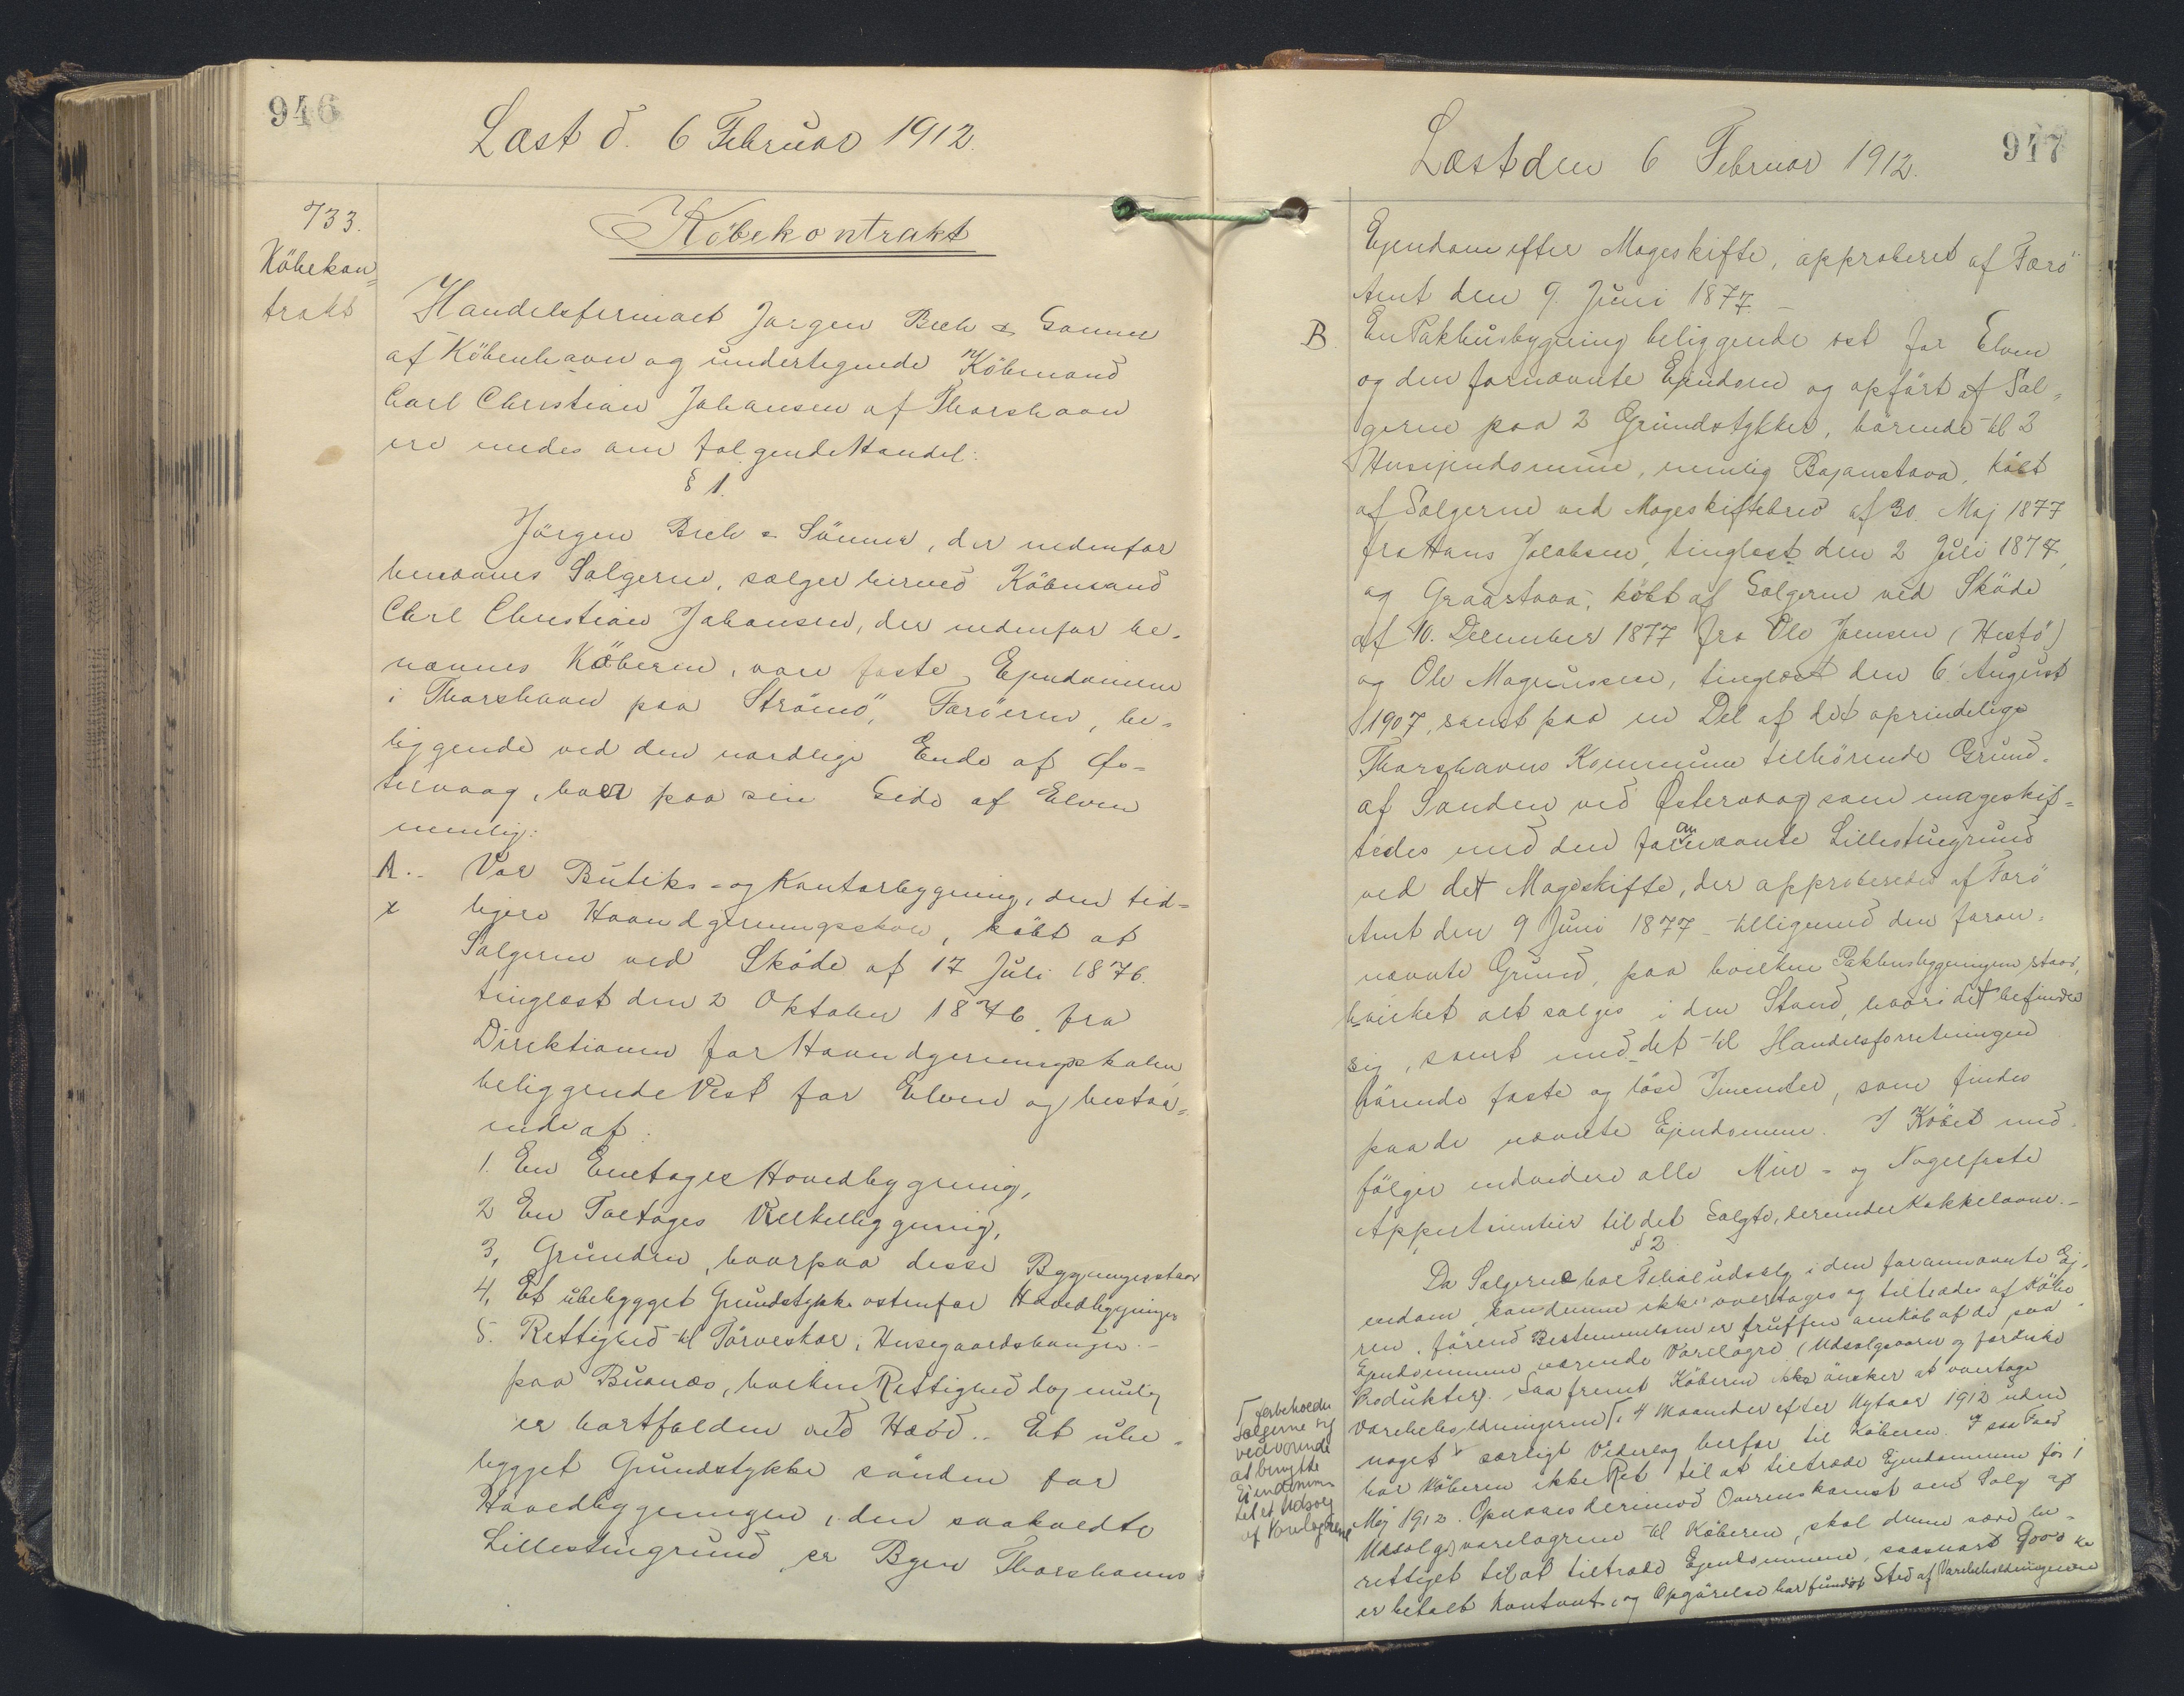 946
Læst d. 6 Februar 1912.
733.
Köbekon=
trakt
Köbekontrakt
Handelsfirmaet Jørgen Bech & Sønner
af Köbenhavn og undertegnede Köbmand
Carl Christian Johansen af Thorshavn
ere enedes om følgende Handel:
§ 1.
Jörgen Bech & Sönner, der nedenfor
benævnes Sælgerne, sælger herved Köbmand
Carl Christian Johansen, der nedenfor be-
nævnes Köberen, vore faste Ejendomme
i Thorshavn paa Strömö, Færöerne, be-
liggende ved den nordlige Ende af Øs-
tervaag, hver paa sin Side af Elven
nemlig:
A. - Vor Butiks- og Kontorbygning, den tid-
x ligere Haandgerningsskole, köbt af
Sælgerne ved Sköde af 17 Juli 1876.
tinglæst den 2 Oktober 1876 fra
Direktionen for Haandgerningsskolen
beliggende Vest for Elven og bestaa-
ende af:
1. En Enetages Hovedbygning,
2 En Toetages Vinkelbygning,
3, Grunden, hvorpaa disse Bygninger staar
4, Et ubebygget Grundstykke østenfor Hovedbygningen
5. Rettighed til Törveskær i Husegaardshaugen -
paa Buanæs, hvilken Rettighed dog mulig
er bortfalden ved Hævd. - Et ube-
bygget Grundstykke sönden for
Hovedbygningen, den saakaldte
Lillestuegrund, er Byen Thorshavns
947
Læst den 6 Februar 1912.
Ejendom efter Mageskifte, approberet af Færö
Amt den 9. Juni 1877 -
B. En Pakhusbygning beliggende øst for Elven
og den fornævnte Ejendom og opfört af Sæl-
gerne paa 2 Grundstykker, hörende til 2
Husejendomme, nemlig Bajanstova, köbt
af Sælgerne ved Mageskiftebrev af 30. Maj 1877
fra Hans Jacobsen, tinglæst den 2 Juli 1877,
og Graastova, köbt af Sælgerne ved Sköde
af 10. December 1877 fra Ole Joensen (Hestö)
og Ole Magnussen, tinglæst den 6. August
1907, samt paa en Del af det oprindelige
Thorshavns Kommune tilhörende Grund.
af Sanden ved Østervaag som mageskif-
tedes med den forannævnte Lillestuegrund
ved det Mageskifte, der approberedes af Færö
Amt den 9 Juni 1877 - tilligemed den foran-
nævnte Grund, paa hvilken Pakhusbygningen staar,
hvilket alt sælges i den Stand, hvori det befinder
sig, samt med det til Handelsforretningen
hörende faste og löse Inventar, som findes
paa de nævnte Ejendomme. I Köbet med-
fölger endvidere alle Mur- og Nagelfaste
Appertinentier til det Solgte, derunder Kakkelovne. -
§ 2
Da Sælgerne har Filialudsalg i den forannævnte Ej-
endom, kan denne ikke overtages og tiltrædes af Köbe-
ren, förend Bestemmelsen er truffen om Köb af de paa
Ejendommene værende Varelagre (Udsalgsvarer og færdiske
Produkter). Saafremt Köberen ikke önsker at overtage
Varebeholdningerne ⌈, 4 Maaneder efter Nytaar 1912 uden
noget særligt Vederlag herfor til Köberen. I saa Fald
har Köberen ikke Ret til at tiltræde Ejendommene för 1
Maj 1912. Opnaaes derimod Overenskomst om Salg af
Udsalgsvarelagrene til Köberen, skal denne være be-
rettiget til at tiltræde Ejendommene, saasnart 9000 Kr
er betalt kontant, og Opgörelse har fundet Sted af Varebeholdningerne
⌈ forbeholder
Sælgerne sig
vedvarende
at benytte
Ejendommene
til et Udsalg
af Varelagrene